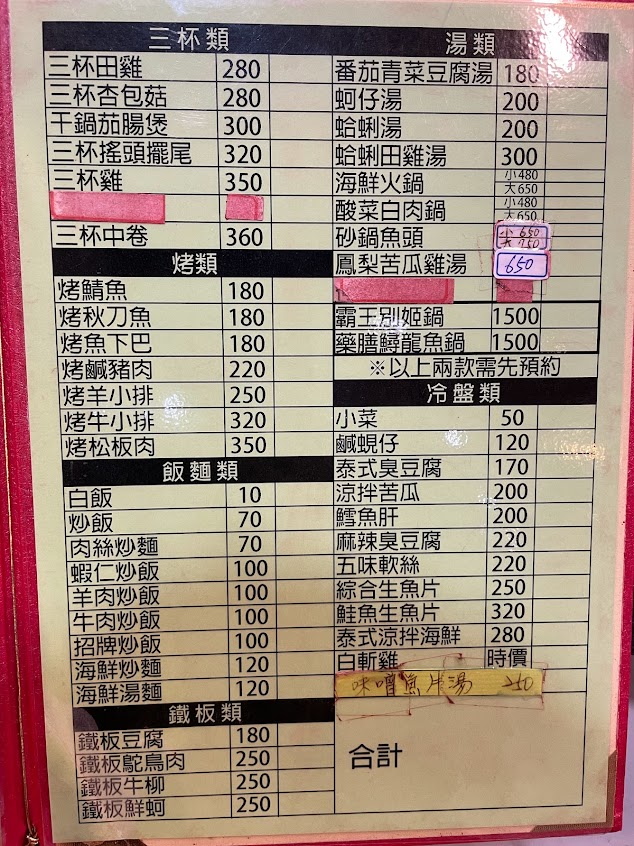 三杯類
三杯田雞 280
三杯杏包菇 280
干鍋茄腸煲 300
三杯搖頭擺尾 320
三杯雞 350
三杯中卷 360
烤類
烤鯖魚 180
烤秋刀魚 180
烤魚下巴 180
烤鹹豬肉 220
烤羊小排 250
烤牛小排 320
烤松板肉 350
飯麵類
白飯 10
炒飯 70
肉絲炒麵 70
蝦仁炒飯 100
羊肉炒飯 100
牛肉炒飯 100
招牌炒飯 100
海鮮炒麵 120
海鮮湯麵 120
鐵板類
鐵板豆腐 180
鐵板鴕鳥肉 250
鐵板牛柳 250
鐵板鮮蚵 250
湯類
番茄青菜豆腐湯 180
蚵仔湯 200
蛤蜊湯 200
蛤蜊田雞湯 300
海鮮火鍋 小480 大650
酸菜白肉鍋 小480 大650
砂鍋魚頭 小650 大750
鳳梨苦瓜雞湯 650
霸王別姬鍋 1500
藥膳鱘龍魚鍋 1500
※以上兩款需先預約
冷盤類
小菜 50
鹹蜆仔 120
泰式臭豆腐 170
涼拌苦瓜 200
鱈魚肝 200
麻辣臭豆腐 220
五味軟絲 220
綜合生魚片 250
鮭魚生魚片 320
泰式涼拌海鮮 280
白斬雞 時價
味噌魚片湯 250
合計